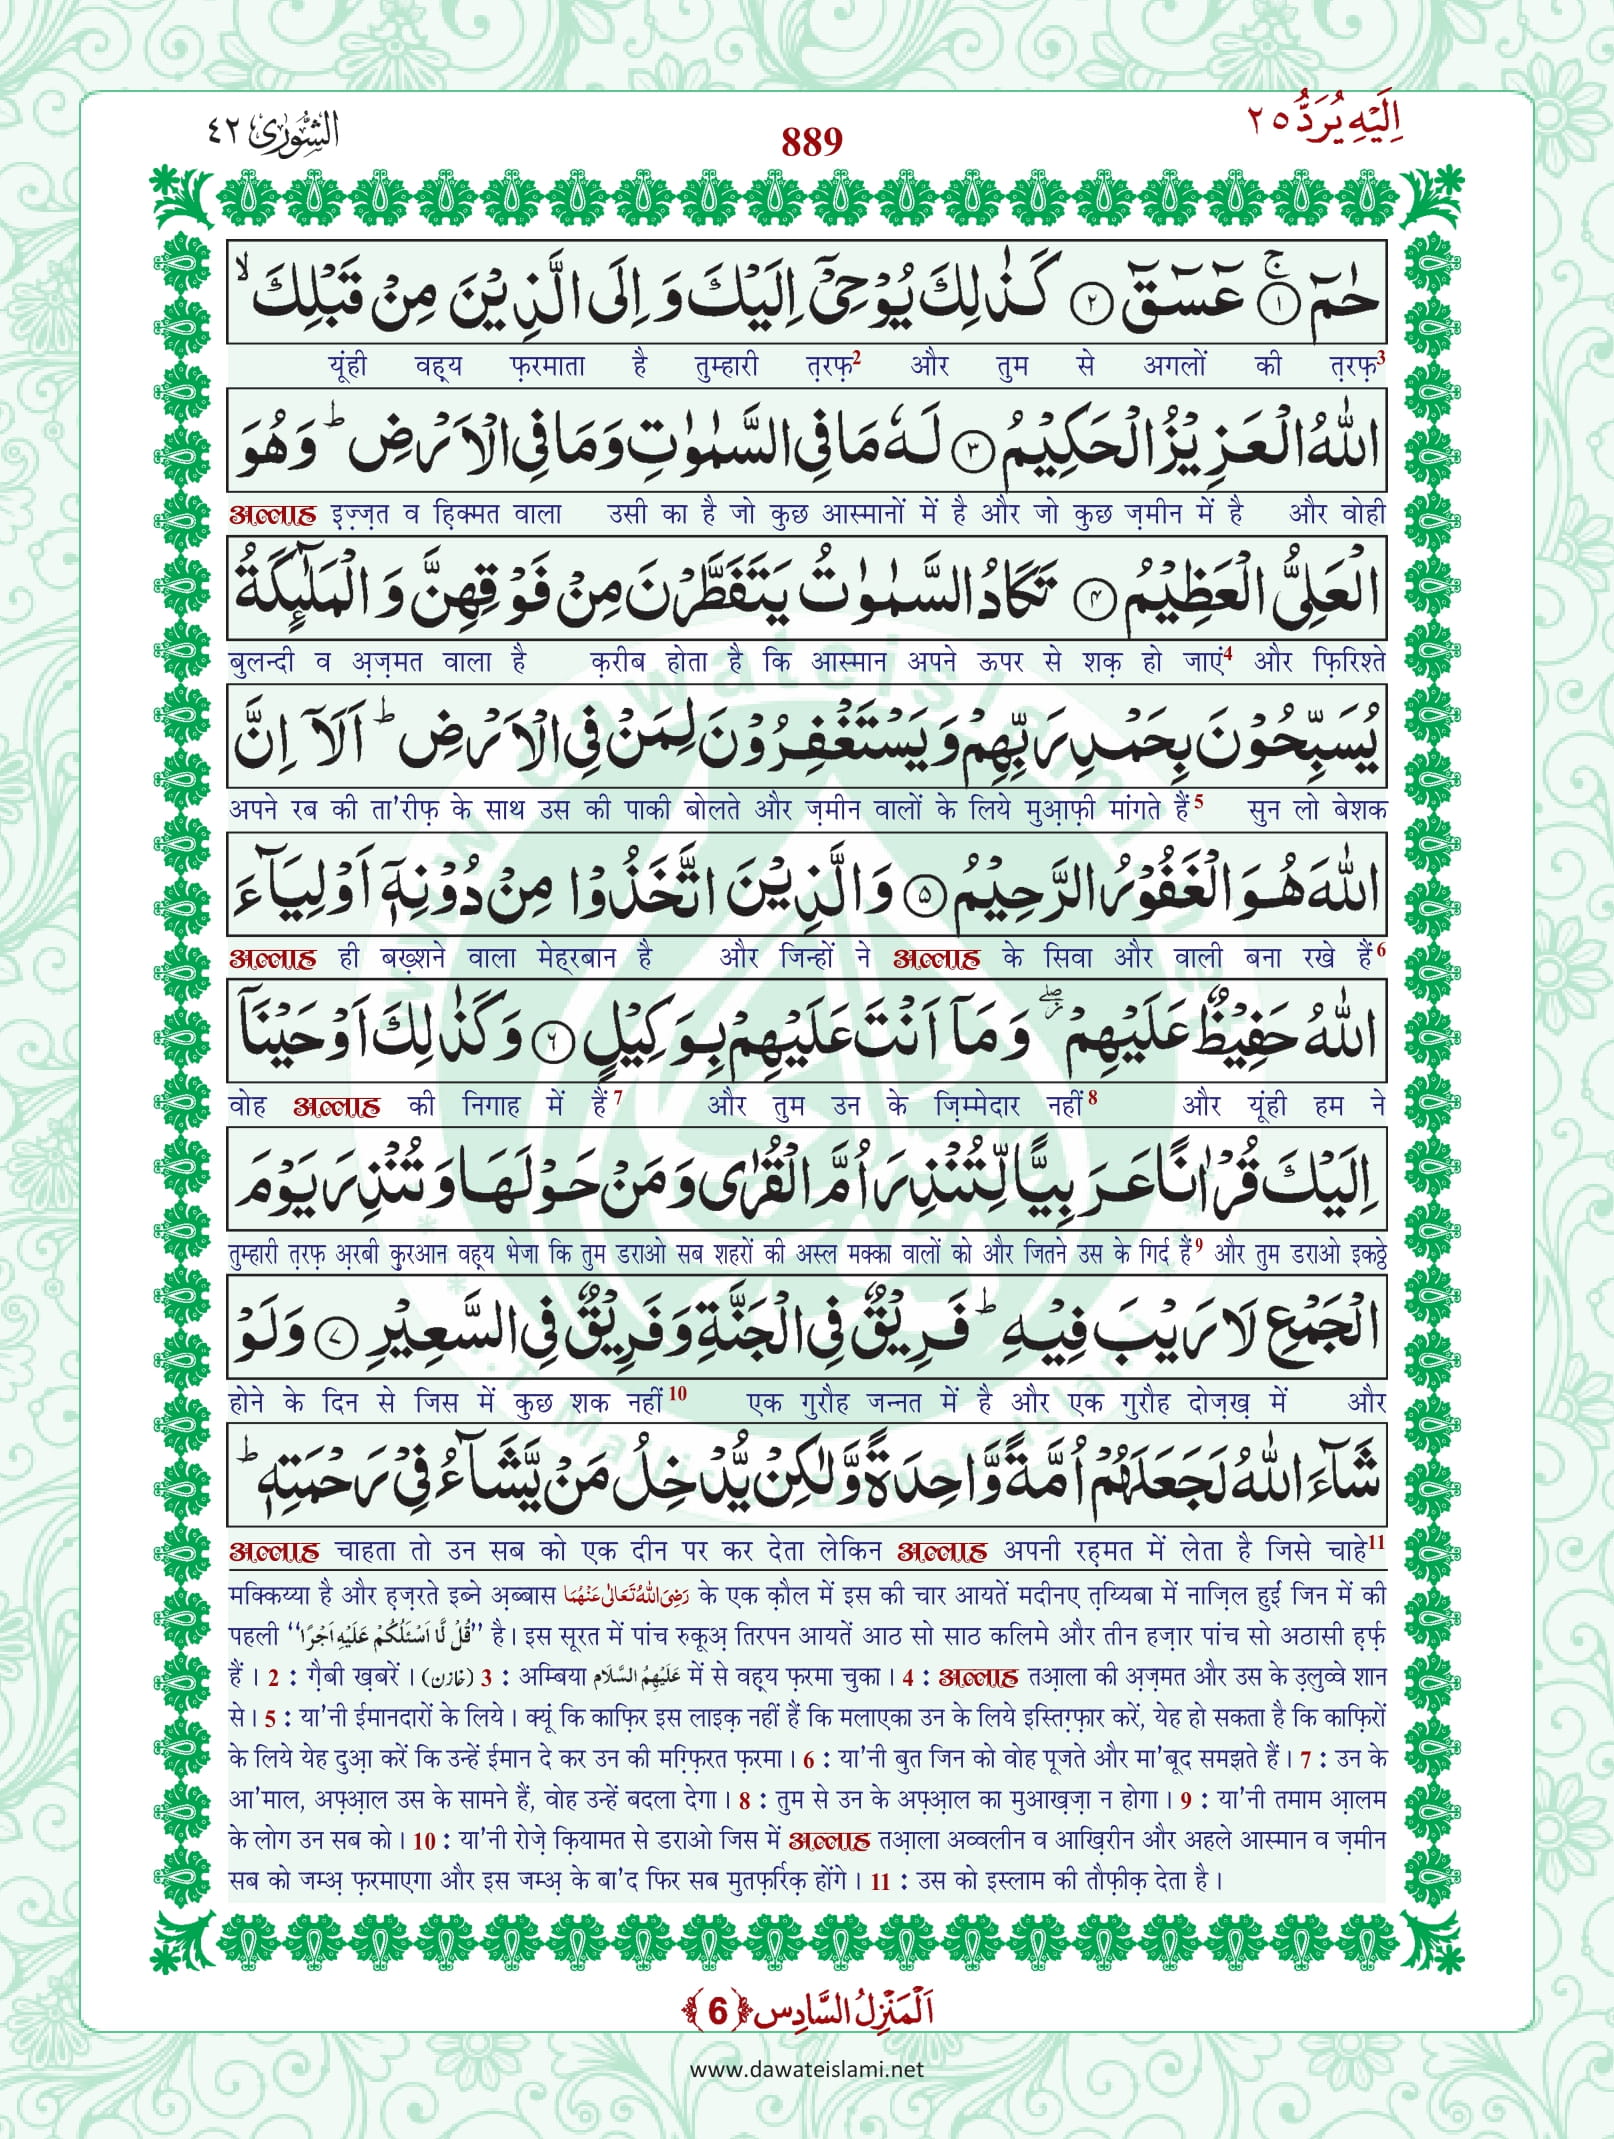 الشُّوْرٰى ٤٢
889
اِلَيْهِ يُرَدُّ ٢٥
حٰمٓ ۚ﴿١﴾ عٓسٓقٓ ﴿٢﴾ كَذٰلِكَ يُوْحِىْۤ اِلَيْكَ وَ اِلَى الَّذِيْنَ مِنْ قَبْلِكَ ۙ
यूंही वह़्य फ़रमाता है तुम्हारी त़रफ़2 और तुम से अगलों की त़रफ़3
اللّٰهُ الْعَزِيْزُ الْحَكِيْمُ ﴿٣﴾ لَهٗ مَا فِى السَّمٰوٰتِ وَمَا فِى الْاَرْضِ ؕ وَهُوَ
अल्लाह इ़ज़्ज़त व ह़िक्मत वाला उसी का है जो कुछ आस्मानों में है और जो कुछ ज़मीन में है और वोही
الْعَلِىُّ الْعَظِيْمُ ﴿٤﴾ تَكَادُ السَّمٰوٰتُ يَتَفَطَّرْنَ مِنْ فَوْقِهِنَّ وَ الْمَلٰٓئِكَةُ
बुलन्दी व अ़ज़मत वाला है क़रीब होता है कि आस्मान अपने ऊपर से शक़ हो जाएं4 और फ़िरिश्ते
يُسَبِّحُوْنَ بِحَمْدِ رَبِّهِمْ وَيَسْتَغْفِرُوْنَ لِمَنْ فِى الْاَرْضِ ؕ اَلَاۤ اِنَّ
अपने रब की ता'रीफ़ के साथ उस की पाकी बोलते और ज़मीन वालों के लिये मुआ़फ़ी मांगते हैं5 सुन लो बेशक
اللّٰهَ هُوَ الْغَفُوْرُ الرَّحِيْمُ ﴿٥﴾ وَالَّذِيْنَ اتَّخَذُوْا مِنْ دُوْنِهٖۤ اَوْلِيَآءَ
अल्लाह ही बख़्शने वाला मेह्रबान है और जिन्हों ने अल्लाह के सिवा और वाली बना रखे हैं6
اللّٰهُ حَفِيْظٌ عَلَيْهِمْ ۖ وَمَاۤ اَنْتَ عَلَيْهِمْ بِوَكِيْلٍ ﴿٦﴾ وَكَذٰلِكَ اَوْحَيْنَاۤ
वोह अल्लाह की निगाह में हैं7 और तुम उन के ज़िम्मेदार नहीं8 और यूंही हम ने
اِلَيْكَ قُرْاٰنًا عَرَبِيًّا لِّتُنْذِرَ اُمَّ الْقُرٰى وَمَنْ حَوْلَهَا وَتُنْذِرَ يَوْمَ
तुम्हारी त़रफ़ अ़रबी क़ुरआन वह़्य भेजा कि तुम डराओ सब शहरों की अस्ल मक्का वालों को और जितने उस के गिर्द हैं9 और तुम डराओ इकठ्ठे
الْجَمْعِ لَا رَيْبَ فِيْهِ ؕ فَرِيْقٌ فِى الْجَنَّةِ وَفَرِيْقٌ فِى السَّعِيْرِ ﴿٧﴾ وَلَوْ
होने के दिन से जिस में कुछ शक नहीं10 एक गुरौह जन्नत में है और एक गुरौह दोज़ख़ में और
شَآءَ اللّٰهُ لَجَعَلَهُمْ اُمَّةً وَّاحِدَةً وَّلٰكِنْ يُّدْخِلُ مَنْ يَّشَآءُ فِىْ رَحْمَتِهٖ ؕ
अल्लाह चाहता तो उन सब को एक दीन पर कर देता लेकिन अल्लाह अपनी रह़मत में लेता है जिसे चाहे11
मक्किय्या है और ह़ज़रते इब्ने अ़ब्बास رَضِىَ اللّٰهُ تَعَالٰى عَنْهُمَا के एक क़ौल में इस की चार आयतें मदीनए त़य्यिबा में नाज़िल हुईं जिन में की
पहली “قُلْ لَّا اَسْئَلُكُمْ عَلَيْهِ اَجْرًا” है। इस सूरत में पांच रुकूअ़ तिरपन आयतें आठ सो साठ कलिमे और तीन हज़ार पांच सो अठासी ह़र्फ़
हैं। 2 : ग़ैबी ख़बरें। (خازن) 3 : अम्बिया عَلَيْهِمُ السَّلَام में से वह़्य फ़रमा चुका। 4 : अल्लाह तआ़ला की अ़ज़मत और उस के उ़लुव्वे शान
से। 5 : या'नी ईमानदारों के लिये। क्यूं कि काफ़िर इस लाइक़ नहीं हैं कि मलाएका उन के लिये इस्तिग़्फ़ार करें, येह हो सकता है कि काफ़िरों
के लिये येह दुआ़ करें कि उन्हें ईमान दे कर उन की मग़्फ़िरत फ़रमा। 6 : या'नी बुत जिन को वोह पूजते और मा'बूद समझते हैं। 7 : उन के
आ'माल, अफ़्आ़ल उस के सामने हैं, वोह उन्हें बदला देगा। 8 : तुम से उन के अफ़्आ़ल का मुआख़ज़ा न होगा। 9 : या'नी तमाम आ़लम
के लोग उन सब को। 10 : या'नी रोज़े क़ियामत से डराओ जिस में अल्लाह तआ़ला अव्वलीन व आख़िरीन और अहले आस्मान व ज़मीन
सब को जम्अ़ फ़रमाएगा और इस जम्अ़ के बा'द फिर सब मुतफ़र्रिक़ होंगे। 11 : उस को इस्लाम की तौफ़ीक़ देता है।
اَلْمَنْزِلُ السَّادِس ﴿6﴾
www.dawateislami.net